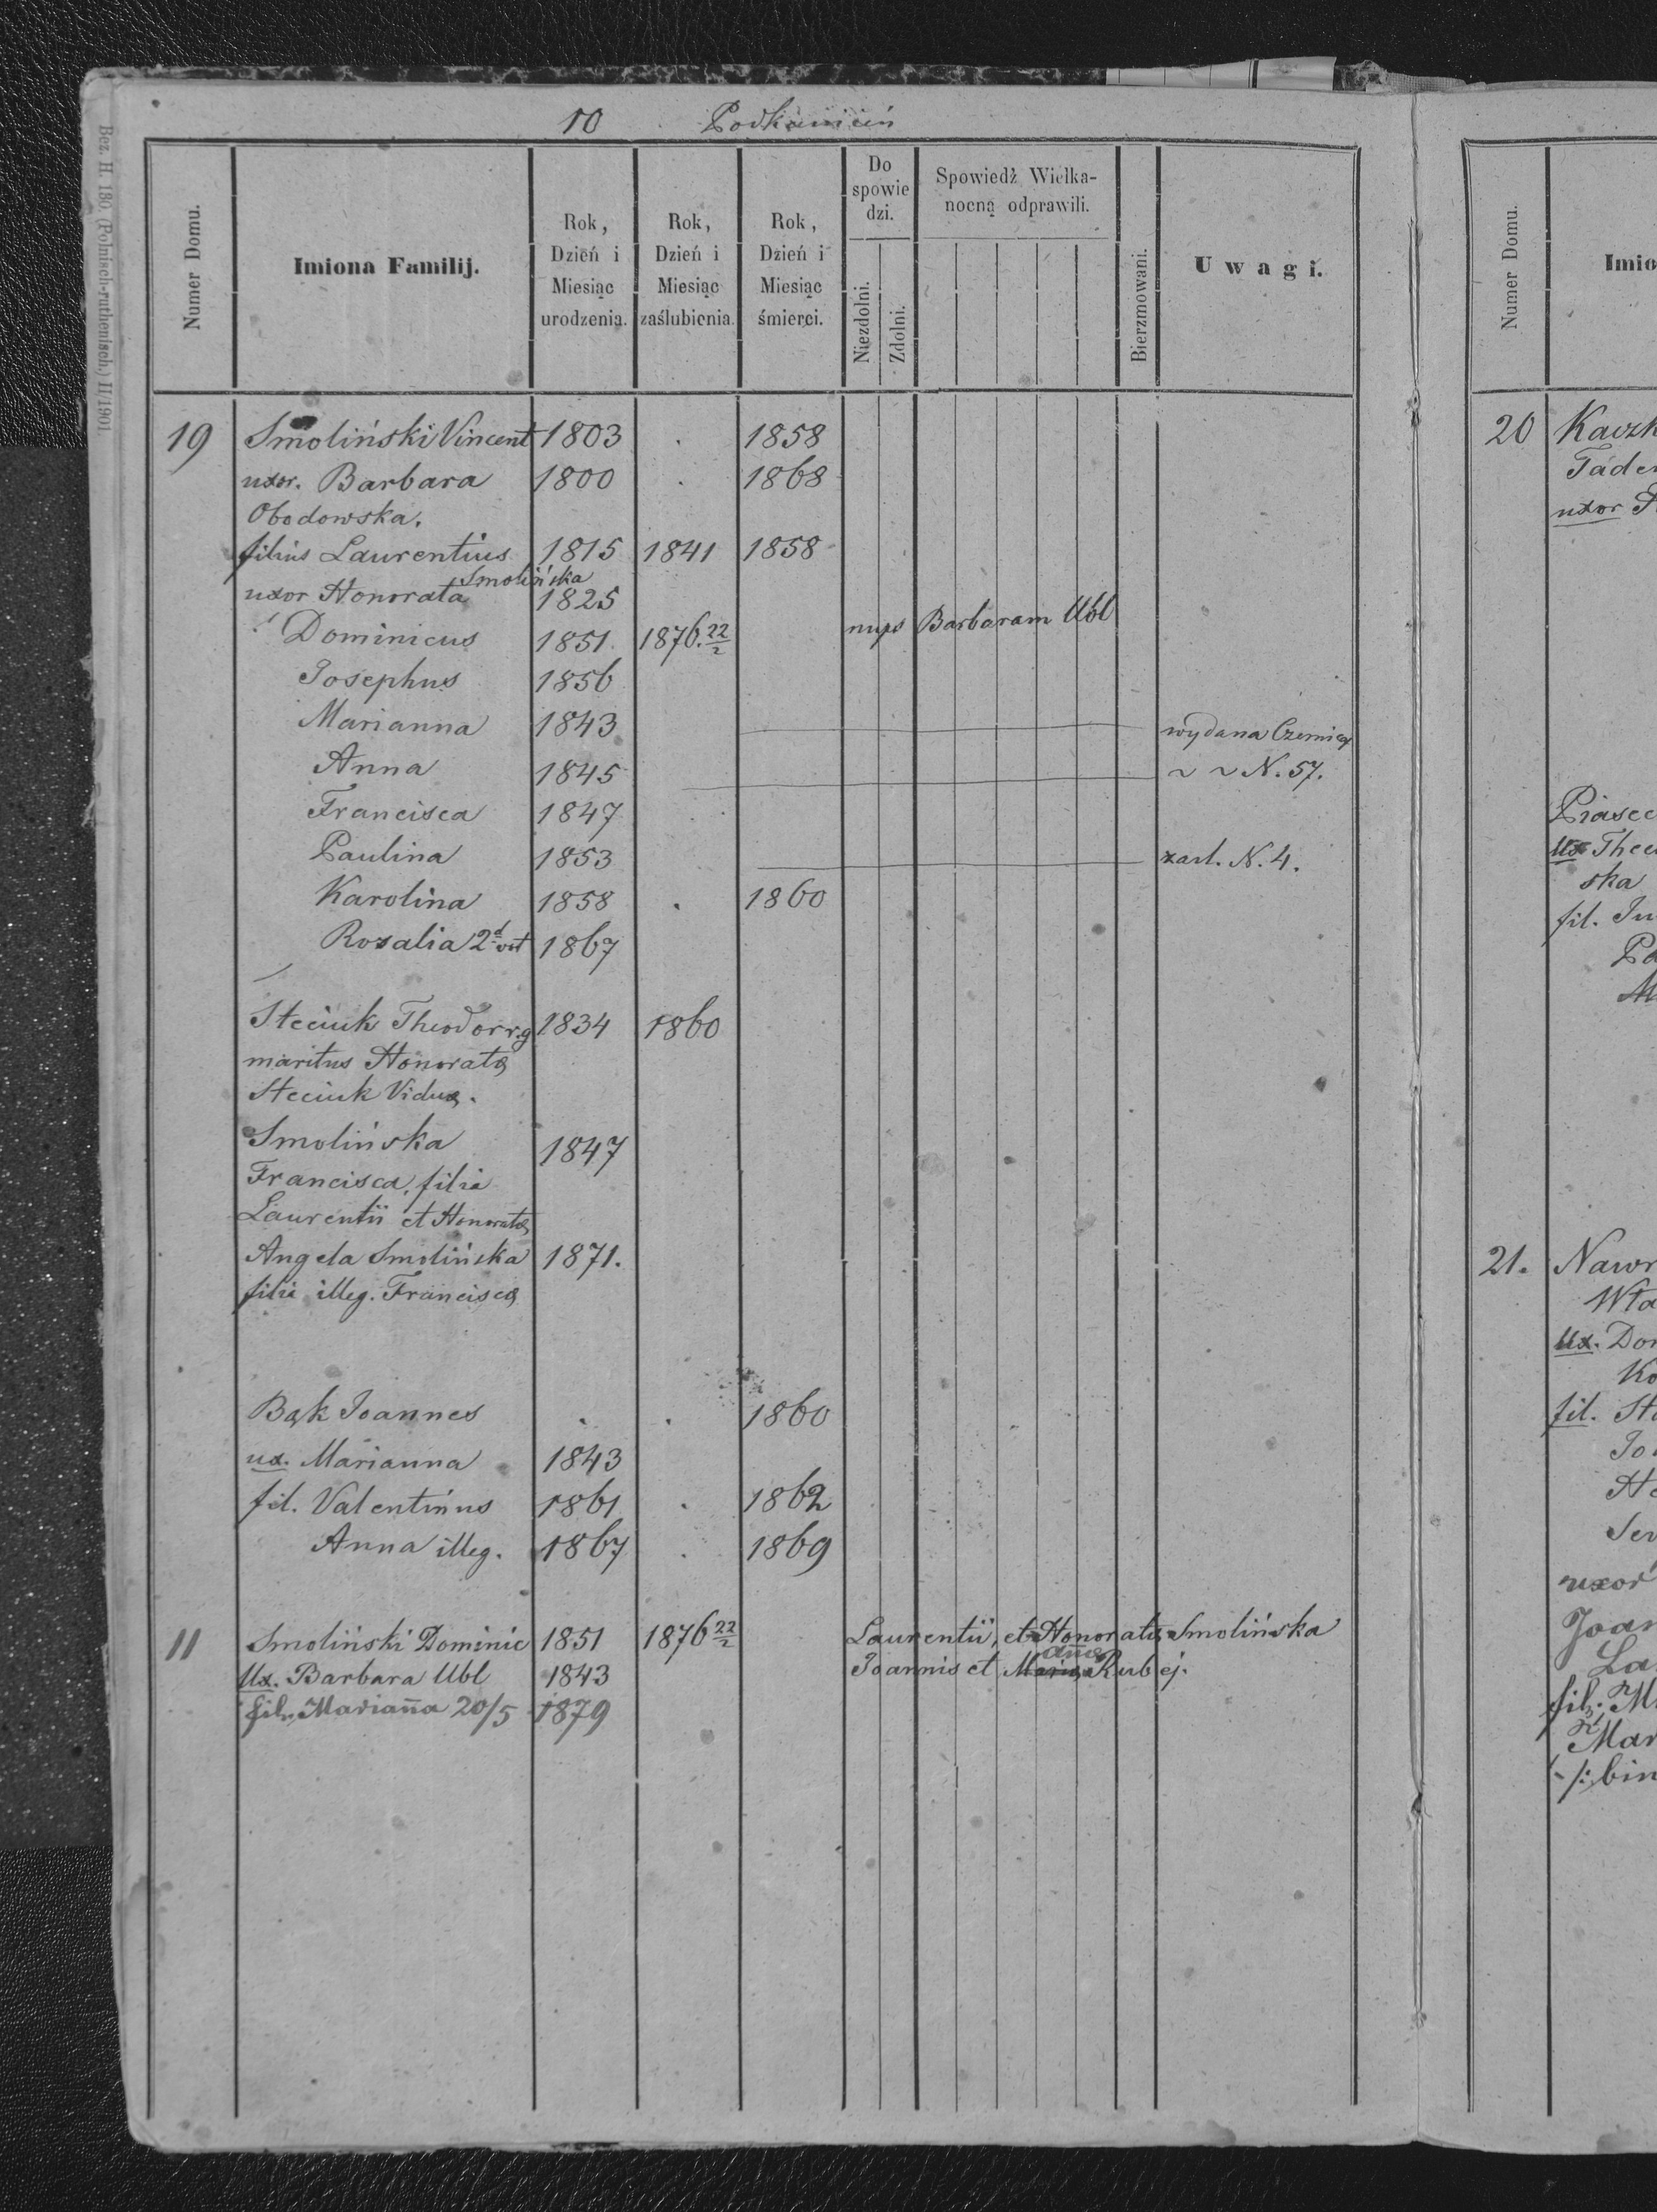 10 Podkamień
Bez. H. 180. (Polnisch-ruthenisch.) II/1901.
Numer Domu.
Imiona Familij.
Rok, Dzień i Miesiąc urodzenia.
Rok, Dzień i Miesiąc zaślubienia.
Rok, Dzień i Miesiąc śmierci.
Do spowie dzi.
Niezdolni.
Zdolni.
Spowiedź Wielka-
nocną odprawili.
Bierzmowani.
Uwagi.
19 Smoliński Vincent 1803 . 1858
uxor. Barbara 1800 . 1868
Obodowska.
filius Laurentius 1815 1841 1858
Smolińska
uxor Honorata 1825
Dominicus 1851. 1876. 22/2 nups Barbaram Ubl
Josephus 1856
Marianna 1843 wydana Czernica
Anna 1845 ~ ~ N. 57.
Francisca 1847
Paulina 1853 zasl. N. 4.
Karolina 1858 . 1860
Rosalia 2d vot 1867
Steciuk Theodor r.g 1834 1860
maritus Honoratę
Steciuk Viduę.
Smolińska 1847
Francisca, filia
Laurentii et Honoratę
Angela Smolińska 1871.
filia illeg. Franciscę
Bąk Joannes . . 1860
ux. Marianna 1843
fil. Valentinus 1861 . 1862
Anna illeg. 1867 . 1869
11 Smoliński Dominic 1851 1876 22/2 Laurentii, et Honoratę Smolińska
Ux. Barbara Ubl 1843 Joannis et Marię Rubej.
annę
filia Marianna 20/5 1879
Numer Domu.
Imio
20 Kaczk
Tade
uxor
Piasec
Ux Theo
ska
fil. Ju
Pa
M
21. Nawr
Wła
Ux. Do
Ko
fil. St
Jo
He
Sev
uxor
Joan
La
fil. M
Mar
bin